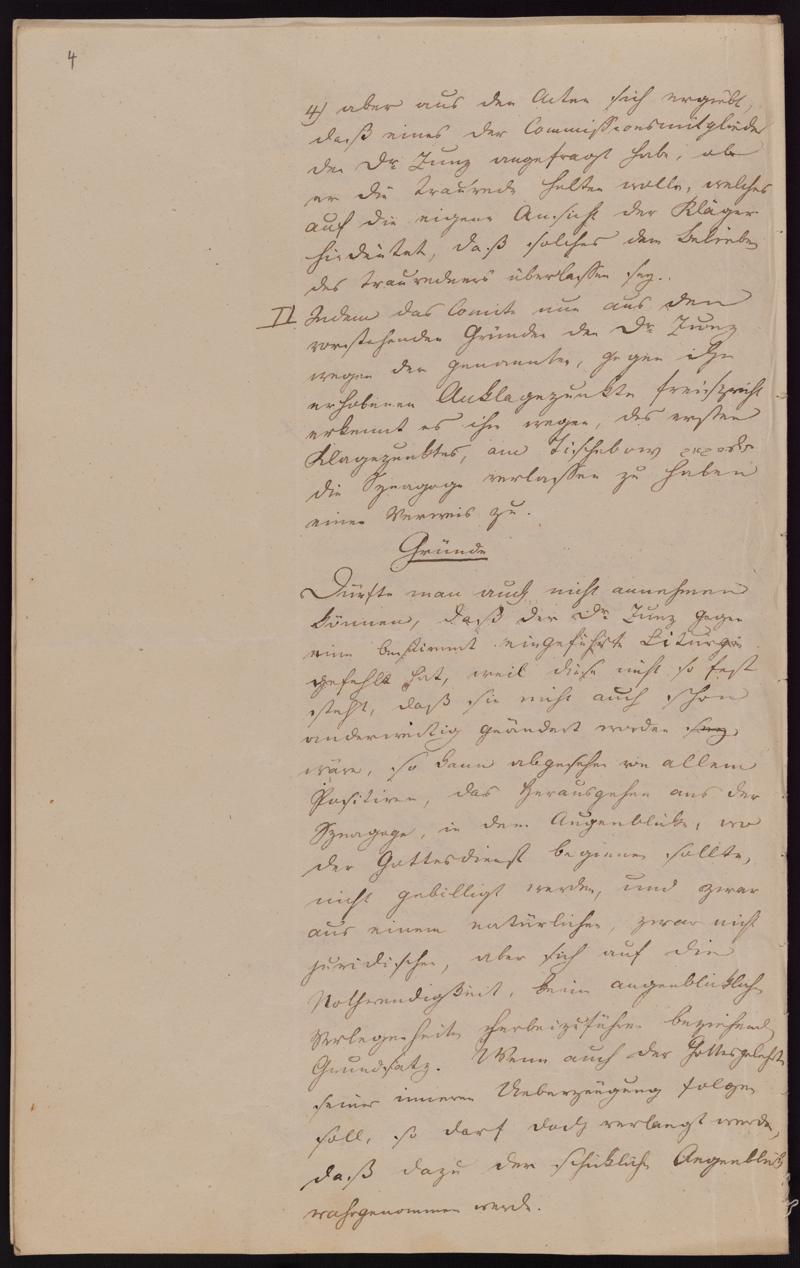 4
4) aber aus den Acten sich ergiebt,
daß eines der Commissionsmitglieder
den Dr Zunz angefragt habe, ob
er die Traurede halten wolle, welches
auf die eigene Ansicht der Kläger
hindeutet, daß solches dem Belieben
des Trauredners überlassen sey.
II Indem das Comite nun aus den
vorstehenden Gründen den Dr Zunz
wegen der genannten, gegen ihn
erhobenen Anklagepunkte freispricht
erkennt es ihm wegen, des ersten
Klagepunktes, am Tischebow
die Synagoge verlassen zu haben
einen Verweis zu.
Gründe
Dürfte man auch nicht annehmen
können, daß der Dr Zunz gegen
eine bestimmt eingeführte Liturgie
gefehlt hat, weil diese nicht so fest
steht, daß sie nicht auch schon
anderweitig geändert worden sey
wäre, so kann abgesehen von allem
Positiven, das Herausgehen aus der
Synagoge, in dem Augenblicke, wo
der Gottesdienst beginnen sollte,
nicht gebilligt werden, und zwar
aus einem natürlichen, zwar nicht
juridischen, aber sich auf die
Nothwendigkeit, keine augenblickliche
Verlegenheiten herbeizuführen beziehenden
Grundsatz. Wenn auch der Gottesgelehrte
seiner inneren Ueberzeugung folgen
soll, so darf doch verlangt werden,
daß dazu der schickliche Augenblick
wahrgenommen werde.